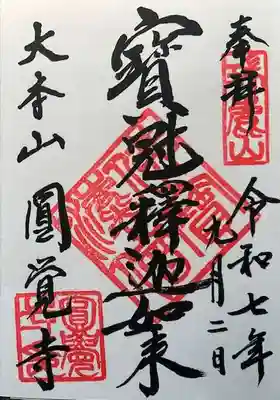 奉拝
瑞鹿山
令和七年
九月二日
寶冠釋迦如来
大本山
圓覚寺